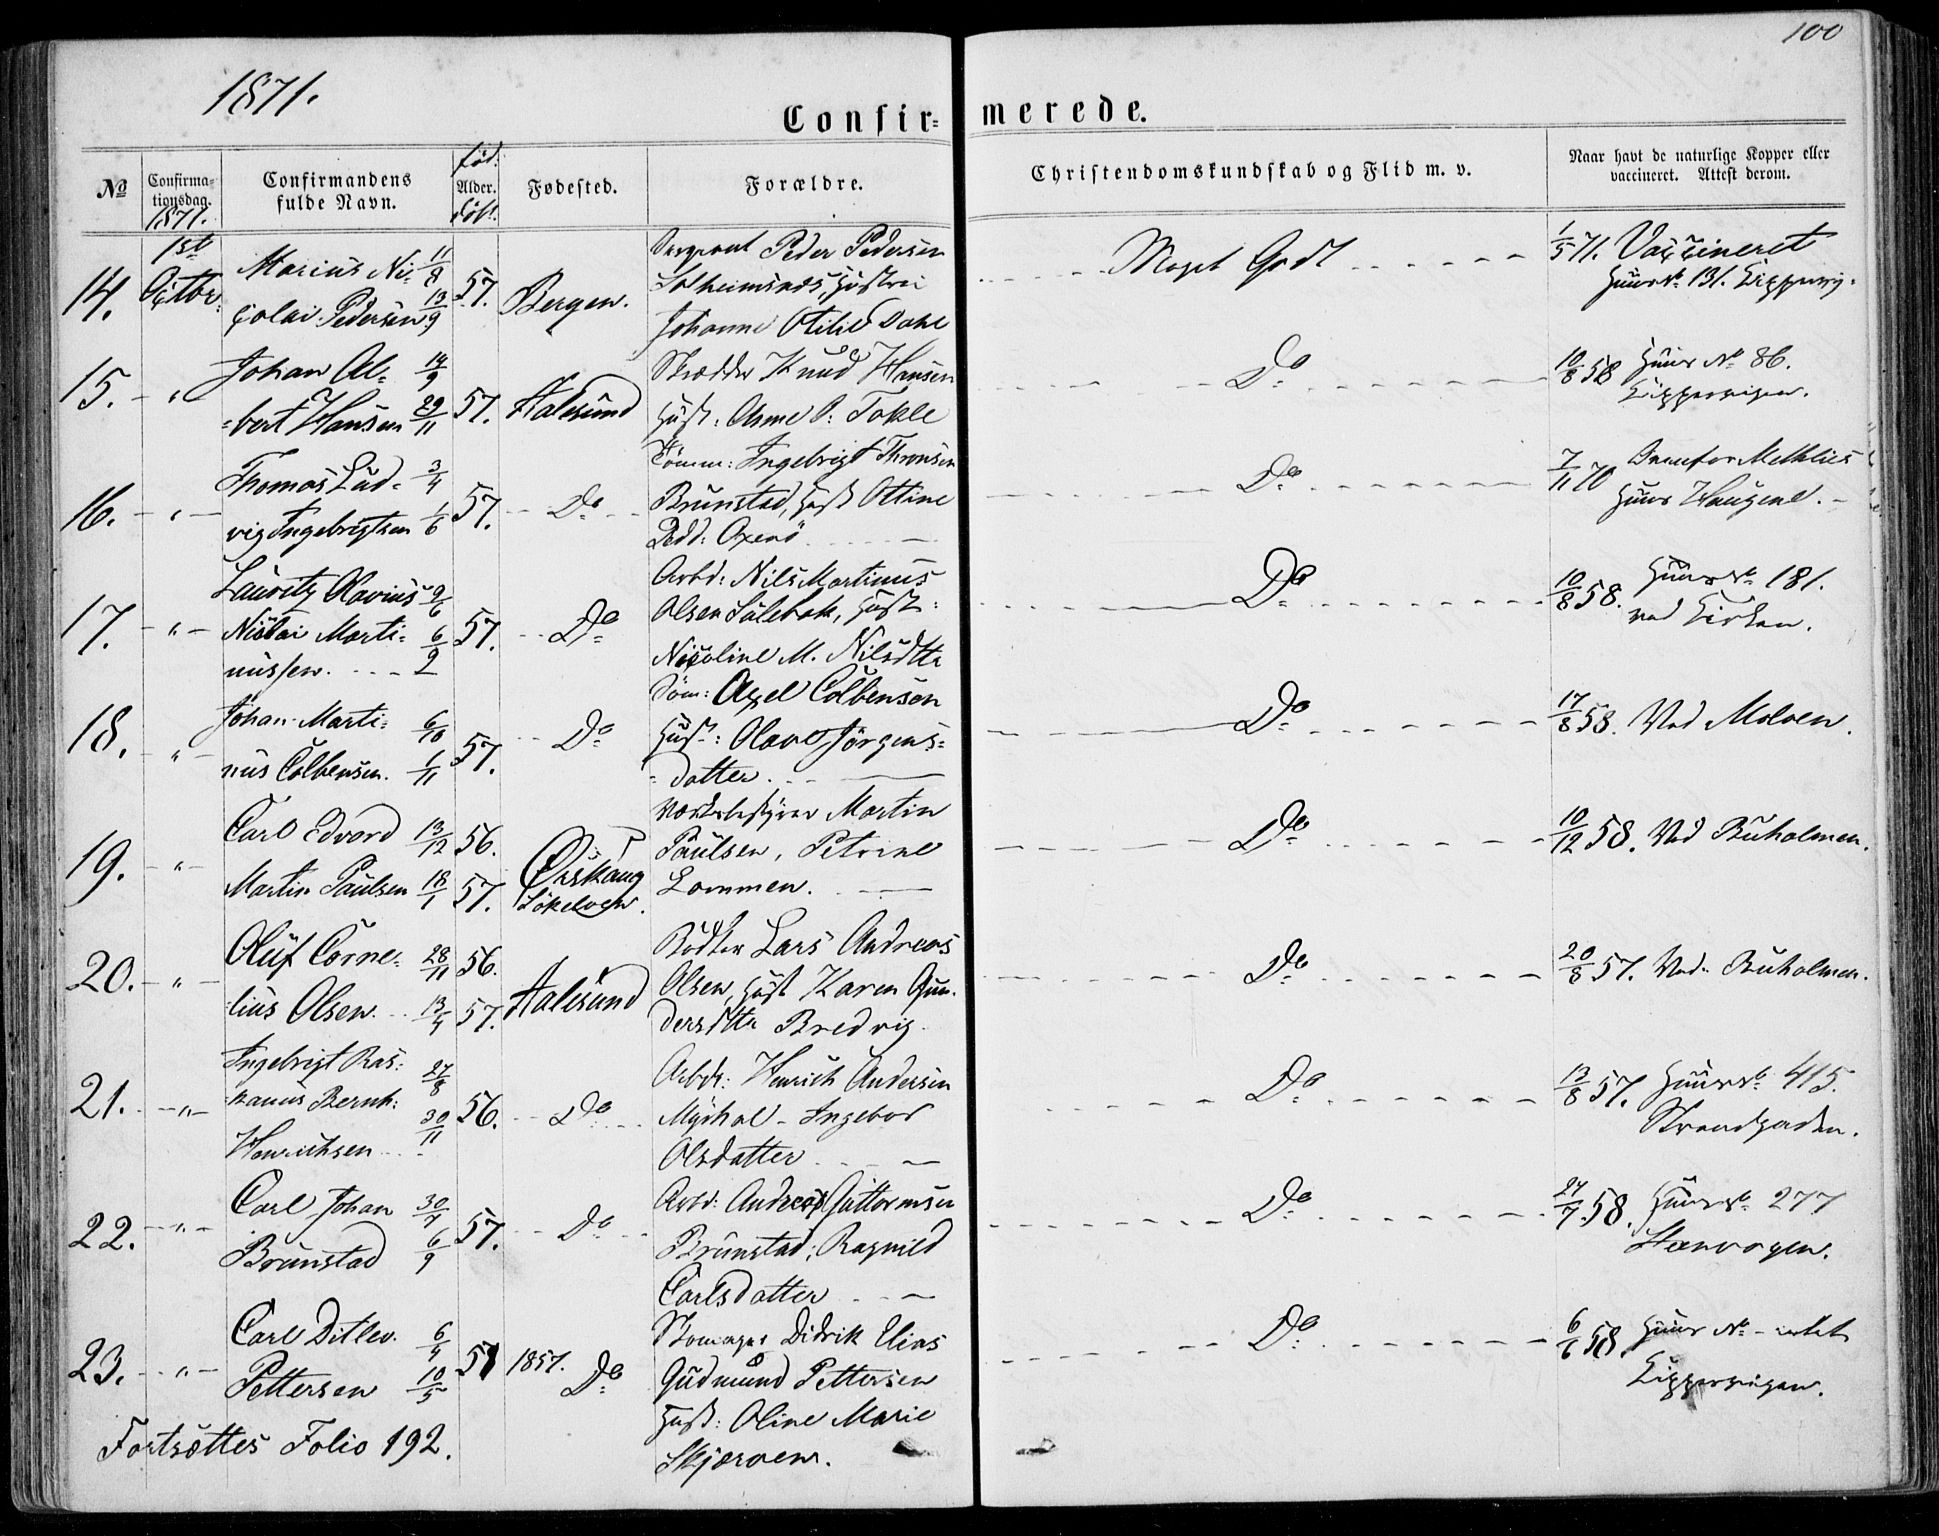 100
1871.
Confir= merede.
No
Confirma=
tionsdag.
1871.
Confirmandens
fulde Navn.
fød:
Alder.
døbt.
Fødested.
Forældre.
Christendomskundskab og Flid m. v.
Naar havt de naturlige Kopper eller
vaccineret. Attest derom.
14. 1ste Octbr. Marius Ni= 11/8
colai Pedersen 13/9 57. Bergen.
Sergeant Peder Pedersen
Solheimsnes, Hustru
Johanne Otilie Dahl
Meget Godt
1/5 71. Vaccineret
Huus No 131.
15. " Johan Al= 14/9
=bert Hansen 29/11 57. Aalesund
Skrædder Knud Hansen
Hust: Anne P. Tokle
Do
10/8 58 Huus No 86.
16. " Thomas Lud= 3/4
vig Ingebrigtsen 1/6 57. Do
Tömm: Ingebrigt Thronsen
Brunstad, Hust Oltine
Pedd: Oxenö
Do
7/11 70
Huus Haugene.
17. " Lauritz Olavius 9/6
Nicolai Marti= 6/9
nussen. 57. Do
Arbd: Nils Martinus
Olsen Sulebak, Hust:
Nicoline M. Nilsdtr
Do
10/8 58. Huus No 181.
ved Kirken.
18. " Johan Marti= 6/10
nus Colbensen. 1/11 57. Do
Töm: Axel Colbenson
Hust: Olave Jörgens=
=datter.
Do
17/8 58. Ved Moloen.
19. " Carl Edvard 13/12 56.
Martin Paulsen 18/1 57. Ørskoug
Sökelven.
Martin
Paulsen, Petrine
Lommen.
Do
10/12 58. Ved Buholmen.
20. " Oluf Corne= 28/11 56.
lius Olsen. 13/4 57. Aalesund
Bödker Lars Andreas
Olsen, Hust Karen Gun=
dersdtr Bredvig
Do
20/8 57. Ved Buholmen.
21. " Ingebrigt Ras= 27/8
Bernh:
Henrichsen 30/11 56. Do
Arbdr: Henrich Andersen
Myrhol - Ingebor
Olsdatter
Do
13/8 57. Huus No 415.
Strandgaden.
22. " Carl Johan 30/7
Brunstad 6/9 57. Do
Arbd: Andreas Guttormsen
Brunstad; Ragnild
Carlsdatter
Do
27/7 58. Huus No 277
23. " Carl Ditlev. 6/4
Pettersen 10/5 57 1857. Do
Skomager Didrik Elias
Gudmund Pettersen
Hust: Oline Marie
Skjærven.
Do
6/6 58. Huus No
Fortsættes Folio 192.